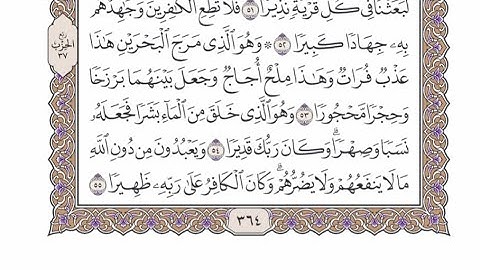 لَبَعَثْنَا فِي كُلِّ قَرْيَةٍ نَّذِيرًا ٥١ فَلَا تُطِعِ ٱلْكَٰفِرِينَ وَجَٰهِدْهُم
بِهِۦ جِهَادًا كَبِيرًا ٥٢ ۞ وَهُوَ ٱلَّذِي مَرَجَ ٱلْبَحْرَيْنِ هَٰذَا
عَذْبٌ فُرَاتٌ وَهَٰذَا مِلْحٌ أُجَاجٌ وَجَعَلَ بَيْنَهُمَا بَرْزَخًا
وَحِجْرًا مَّحْجُورًا ٥٣ وَهُوَ ٱلَّذِي خَلَقَ مِنَ ٱلْمَآءِ بَشَرًا فَجَعَلَهُۥ
نَسَبًا وَصِهْرًا ۗ وَكَانَ رَبُّكَ قَدِيرًا ٥٤ وَيَعْبُدُونَ مِن دُونِ ٱللَّهِ
مَا لَا يَنفَعُهُمْ وَلَا يَضُرُّهُمْ ۗ وَكَانَ ٱلْكَافِرُ عَلَىٰ رَبِّهِۦ ظَهِيرًا ٥٥
٣٦٤
ربع
الحزب
٣٧